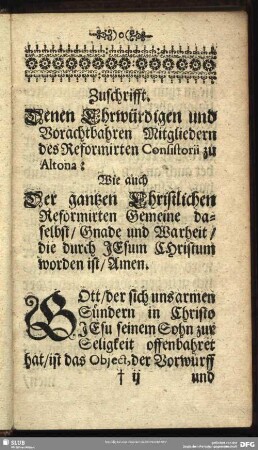 Zuschrifft.
Denen Ehrwürdigen und
Vorachtbahren Mitgliedern
des Reformirten Consistorii zu
Altona:
Wie auch
Der gantzen Christlichen
Reformirten Gemeine da-
selbst/ Gnade und Warheit/
die durch JEsum CHristum
worden ist/ Amen.
GOtt/ der sich uns armen
Sündern in Christo
JEsu seinem Sohn zur
Seligkeit offenbahret
hat/ ist das Object, der Vorwurff
† ij
und
SLUB
DFG